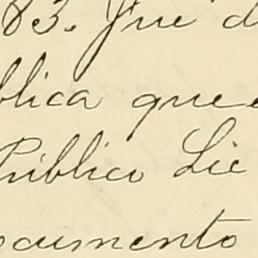 83. Fue d
blica que
Público Lic
ocumento